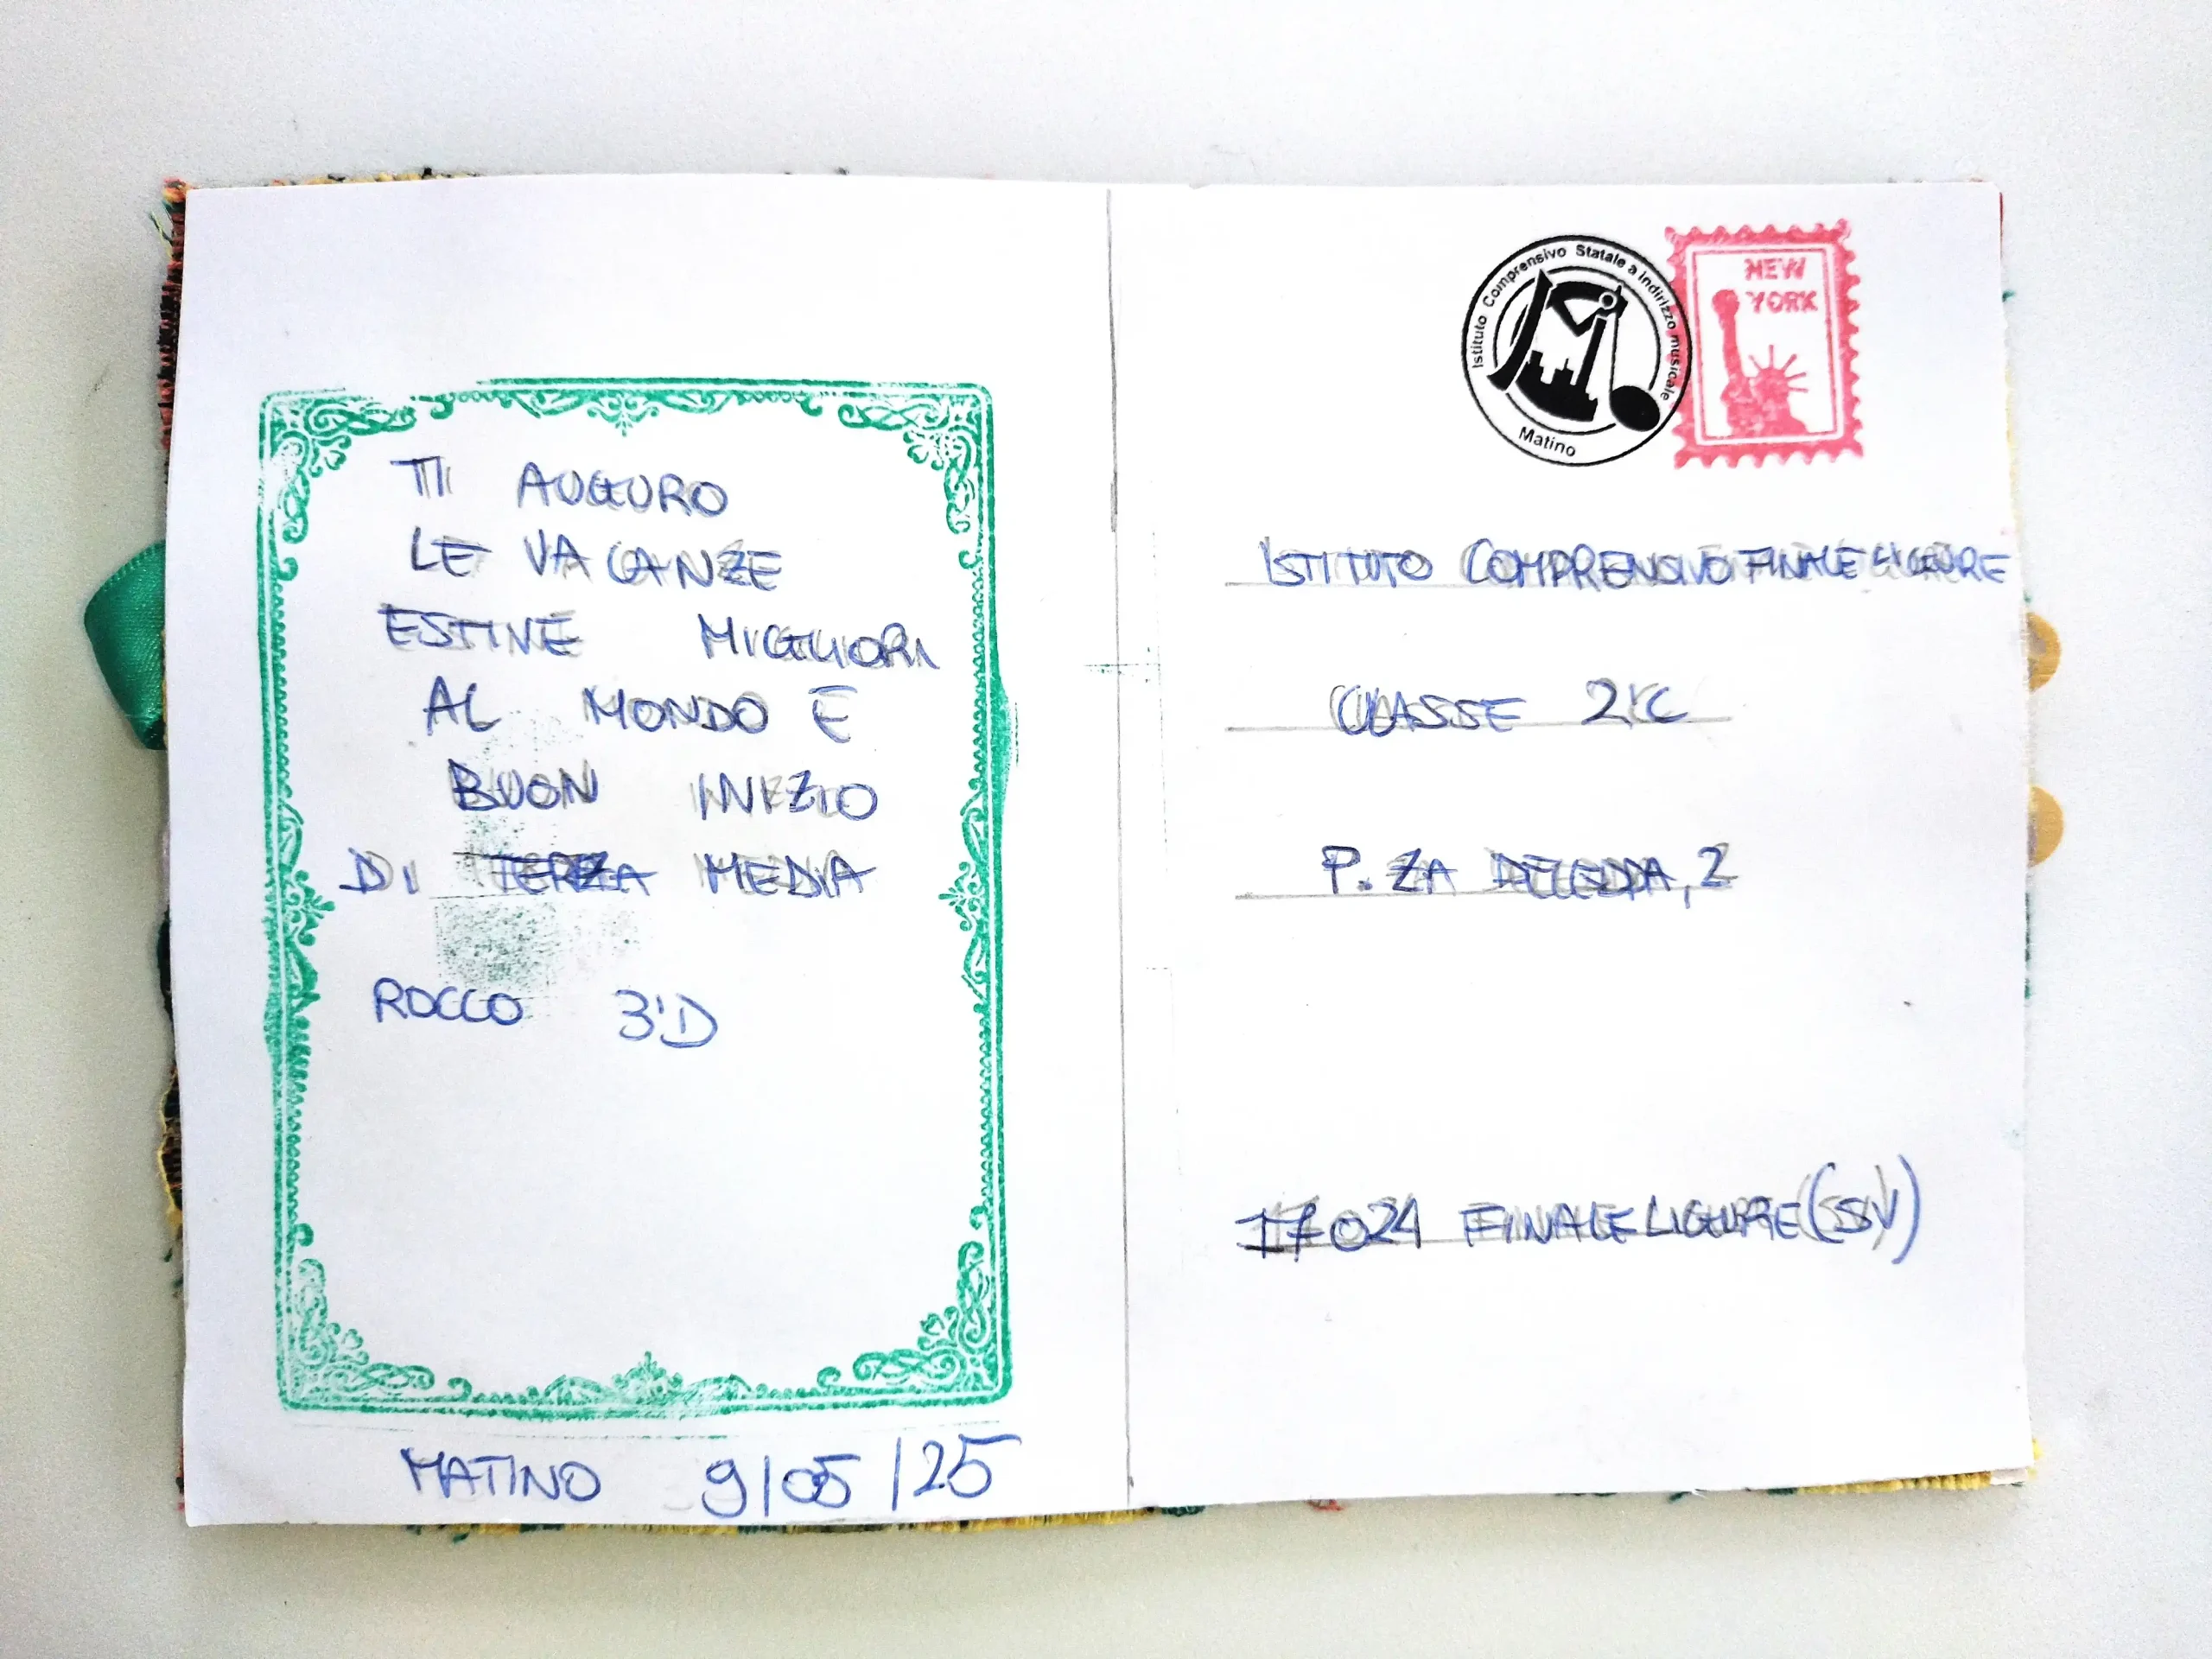 TI AUGURO
LE VACANZE
ESTIVE MIGLIORI
AL MONDO E
BUON INIZIO
DI TERZA MEDIA
ROCCO 3'D
MATINO 9/05/25
Istituto Comprensivo Statale a indirizzo musicale
Matino
NEW
YORK
ISTITUTO COMPRENSIVO FINALE LIGURE
CLASSE 2'C
P.ZA DELEDDA, 2
17024 FINALE LIGURE (SV)